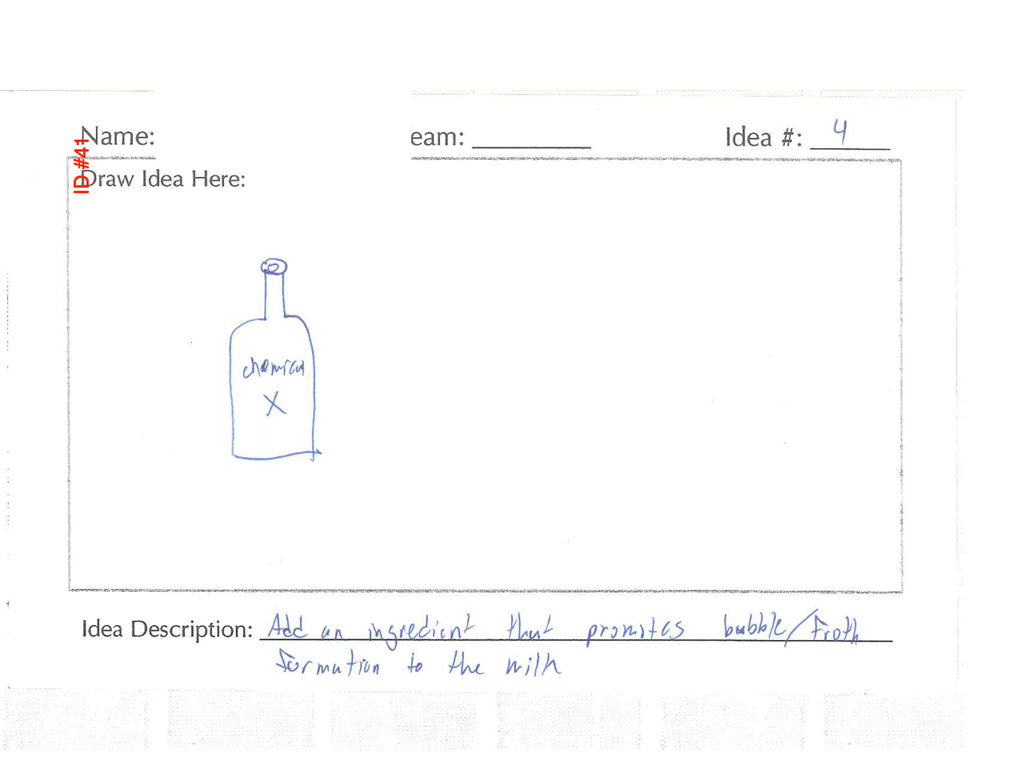 Name:
eam:
Idea #: 4
ID #41
Draw Idea Here:
chemical
X
Idea Description: Add an ingredient that promotes bubble/froth
formation to the milk